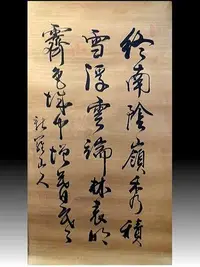 終南陰嶺秀積
雪浮雲端林表明
霽色城中增暮寒
新羅山人